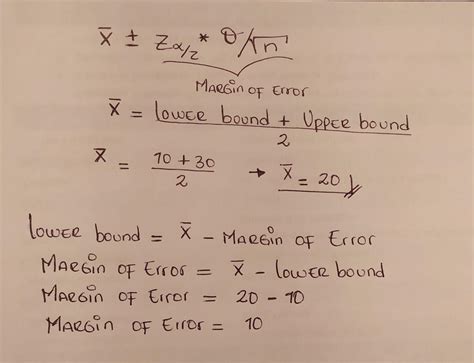 X̄ ± Zα/2 * σ/√n
Margin of Error
X̄ = Lower bound + Upper bound / 2
X̄ = 10 + 30 / 2 → X̄ = 20
Lower bound = X̄ - Margin of Error
Margin of Error = X̄ - Lower bound
Margin of Error = 20 - 10
Margin of Error = 10